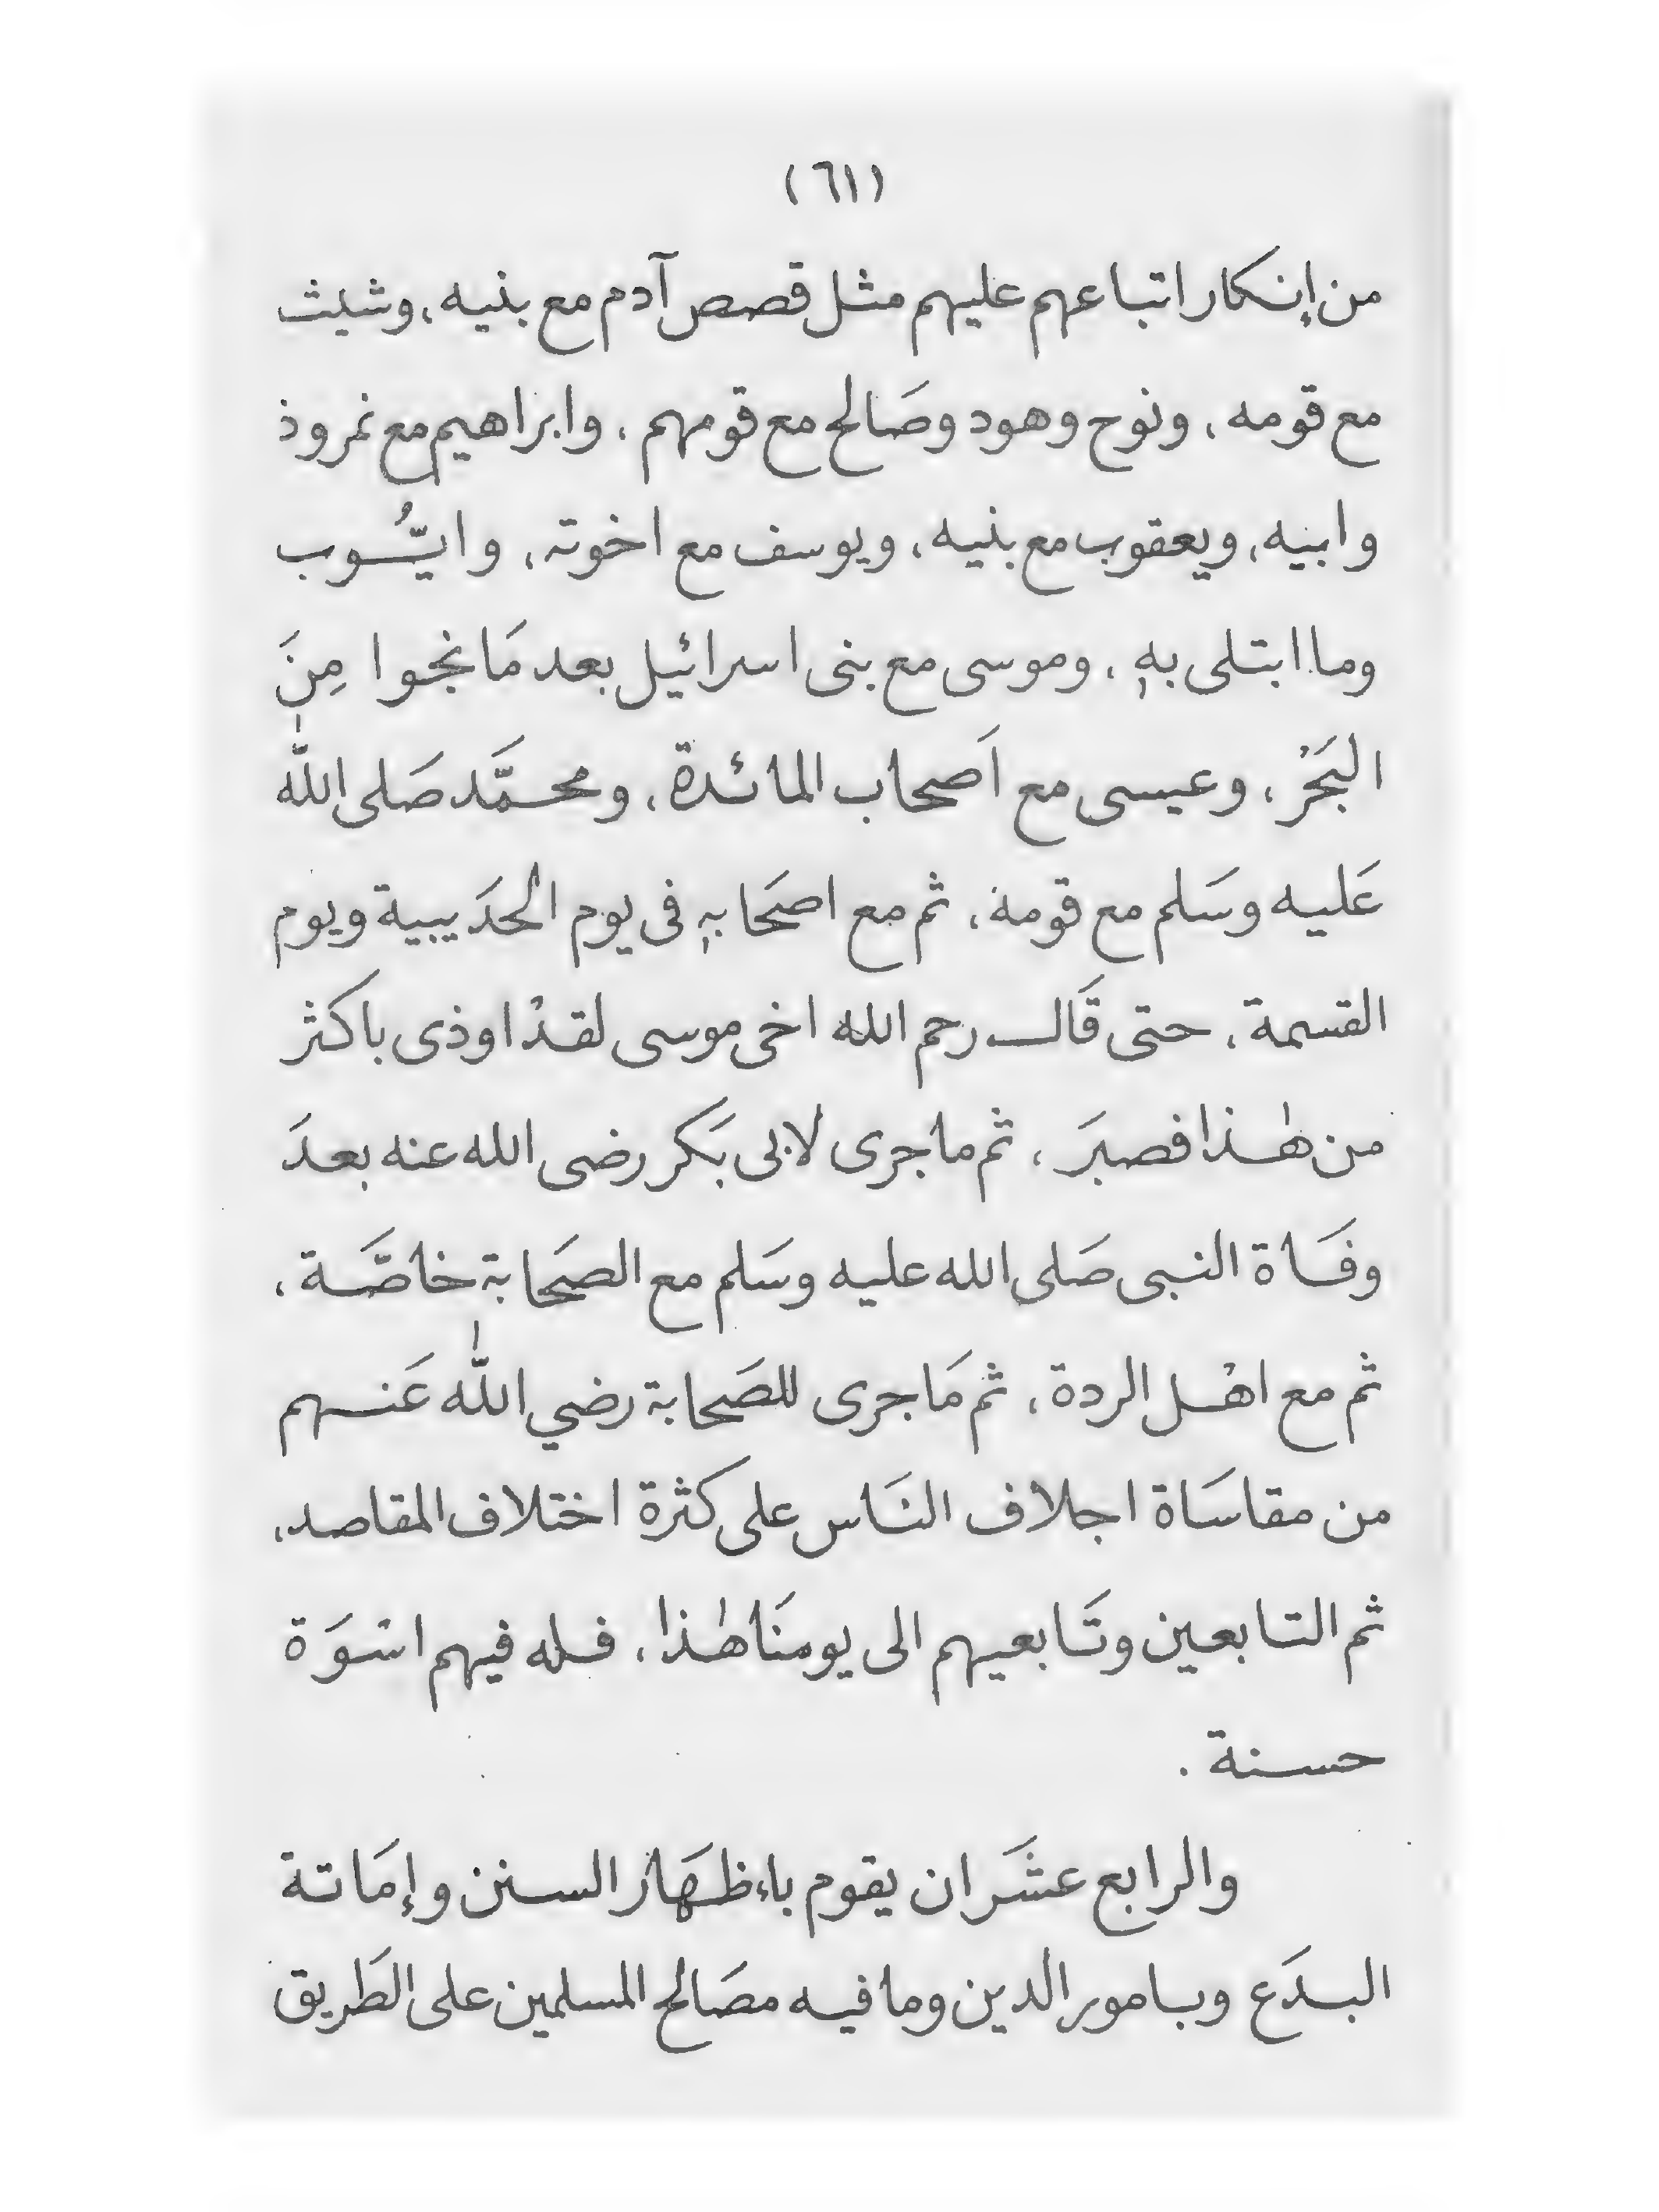 (٦١)
من إنكار اتباعهم عليهم مثل قصص آدم مع بنيه، وشيث
مع قومه، ونوح وهود وصَالح مع قومهم، وابراهيم مع نمروذ
وابيه، ويعقوب مع بنيه، ويوسف مع اخوته، وايُّوب
وما ابتلى بهٖ، وموسى مع بنى اسرائيل بعد مَا نجوا مِنَ
البَحْر، وعيسى مع اَصحاب المائدة، ومحمَّد صَلى اللّٰه
عَليه وسَلم مع قومه، ثم مع اصحَابهٖ فى يوم الحدَيبية ويوم
القسمة، حتى قَال رحم الله اخى موسى لقدْ اوذى باكثر
من هٰذا فصبَر، ثم ما جرى لابى بَكر رضى الله عنه بعدَ
وفَاة النبى صَلى الله عليه وسَلم مع الصحَابة خاصَّة،
ثم مع اهْل الردة، ثم مَا جرى للصَحابة رضي اللّٰه عَنهم
من مقاسَاة اجلاف النَاس على كثرة اختلاف المقاصد،
ثم التابعين وتَابعيهم الى يومنَا هٰذا، فله فيهم اسْوَة
حسنة.
والرابع عشَر ان يقوم باءظهَار السنن وإمَاتة
البدَع وبامور الدين وما فيه مصَالح المسلمين على الطَريق